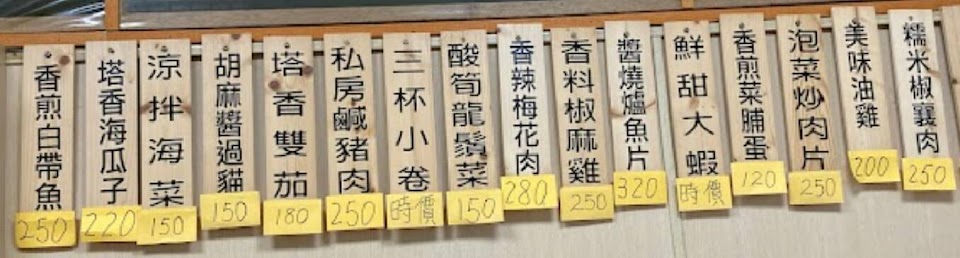 香煎白帶魚
250
塔香海瓜子
220
涼拌海菜
150
胡麻醬過貓
150
塔香雙茄
180
私房鹹豬肉
250
三杯小卷
時價
酸筍龍鬚菜
150
香辣梅花肉
280
香料椒麻雞
250
醬燒爐魚片
320
鮮甜大蝦
時價
香煎菜脯蛋
120
泡菜炒肉片
250
美味油雞
200
糯米椒襄肉
250